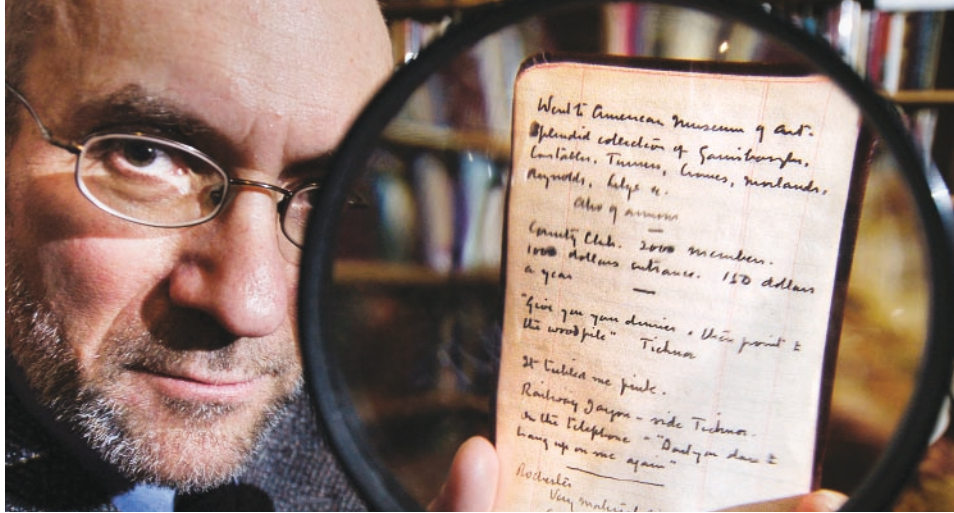 Went to American Museum of Art.
Splendid collection of Gainsboroughs,
Constables, Turners, Cromes, Morlands,
Reynolds,
Also of
County Club. 2000 members.
1000 dollars entrance. 150 dollars
a year
"Give you your dinner & then point to
the woodpile" Ticknor
It tickled me pink.
Railway jargon - vide Ticknor.
On the telephone - "Don't you dare to
hang up on me again"
Rochester
Very